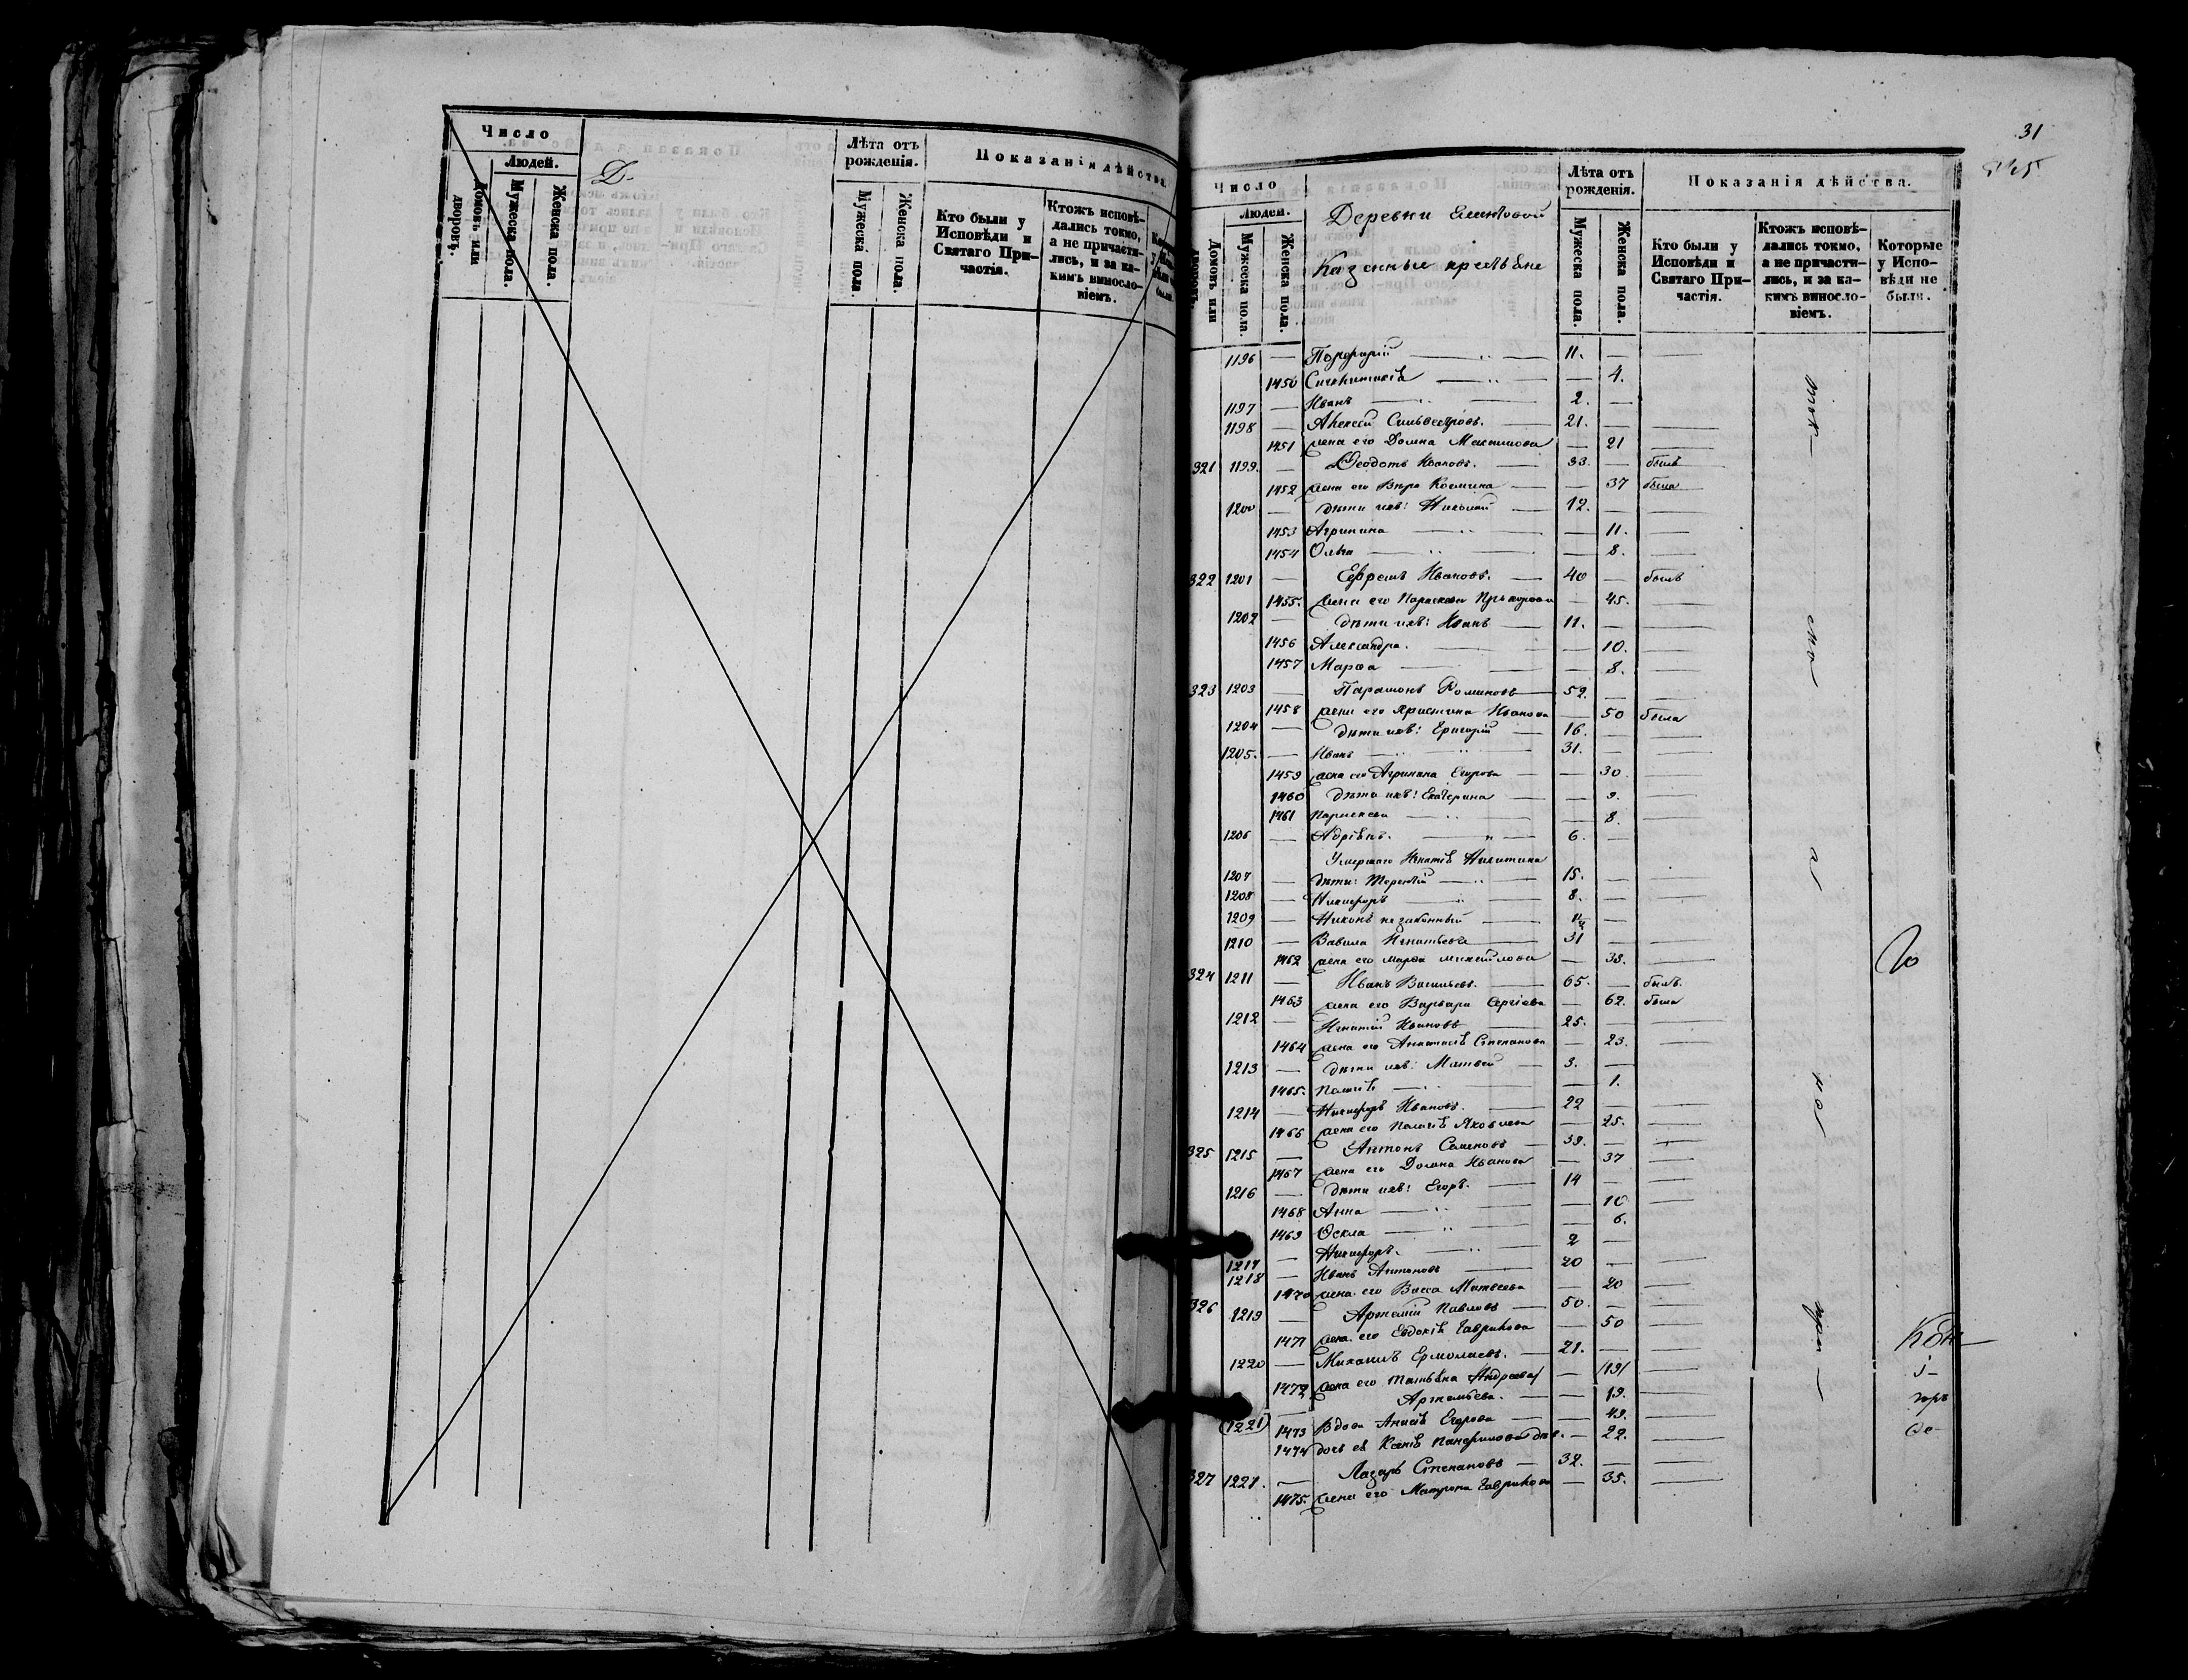 Число
Людей.
Домовъ или дворовъ.
Мужеска пола.
Женска пола.
Д-
Лѣта отъ рожденія.
Мужеска пола.
Женска пола.
Показанія дѣйства.
Кто были у Исповѣди и Святаго Причастія.
Ктожъ исповѣдались токмо, а не причастились, и за какимъ винословіемъ.
31
Число
Людей.
Домовъ или дворовъ.
Мужеска пола.
Женска пола.
Деревни
Казенные крестьяне
Лѣта отъ рожденія.
Мужеска пола.
Женска пола.
Показанія дѣйства.
Кто были у Исповѣди и Святаго Причастія.
Ктожъ исповѣдались токмо, а не причастились, и за какимъ винословіемъ.
Которые у Исповѣди не были.
1196 — Порфирій — 11. —
1450 Сигклитикія — — 4.
1197 — Иванъ — 2. —
1198 — Алексѣй Сильвестровъ. — 21. —
1451 жена его Домна Максимова — 21
321 1199. — Ѳеодотъ Ивановъ. — 33. — былъ
1452 жена его Вѣра Космина — — 37 была
1200 — дѣти ихъ: Николай — 12. —
1453 Агрипина — — 11. —
1454 Ольга — — 8. —
322 1201 — Ефремъ Ивановъ. — 40 — былъ
1455. жена его Параскева — 45. —
1202 — дѣти ихъ: Иванъ — 11. —
1456 Александра. — — 10. —
1457 Марѳа — — 8. —
323 1203 — Парамонъ Романовъ — 52. —
1458 жена его Христина Иванова — 50 была
1204 — дѣти ихъ: Григорій — 16. —
1205. — Иванъ — 31. —
1459 жена его Агрипина Егорова — — 30. —
1460 дѣти ихъ: Екатерина — — 9. —
1461 Параскева — — 8. —
1206 — Адріянъ. — 6. —
Умершаго Игнатія Никитина
1207 — дѣти: Терентій — 15. —
1208 — Никифоръ — 8. —
1209 — Никонъ незаконный —
1210 — Вавила Игнатьевъ — 31 —
1462 жена его Марѳа Михайлова — 33. —
324 1211 — Иванъ Васильевъ. — 65. — былъ.
1463 жена его Варвара Сергіева — 62. была
1212 — Игнатій Ивановъ — 25. —
1464 жена его Анастасія Степанова — 23. —
1213 — дѣти ихъ: Матвей — 3. —
1465. Пелагія — — 1.
1214 — Никифоръ Ивановъ. — 22 —
1466 жена его Пелагія Яковлева — 25. —
325 1215 — Антонъ Семеновъ — 39. —
1467 жена его Домна Иванова — 37 —
1216 — дѣти ихъ: Егоръ. — 14 —
1468 Анна — — 10. —
1469 Ѳекла — — 6.
1217 — Никифоръ. — 2 —
1218 — Иванъ Антоновъ — 20 —
1470 жена его Васса Матвеева — 20 —
326 1219 — Артемій Павловъ — 50. —
1471 жена его Евдокія Гаврилова — 50 —
1220 — Михаилъ Ермолаевъ. — 21. —
1472 жена его Татьяна Андреева — 19 —
(1221) — Артемьева. — — 19. —
1473 Вдова Анисія Егорова — — 49. —
1474 дочь ея Ксенія — 22. —
327 1221. — Лазарь Степановъ — 32. —
1475. жена его Матрона Гаврилова — 35. —